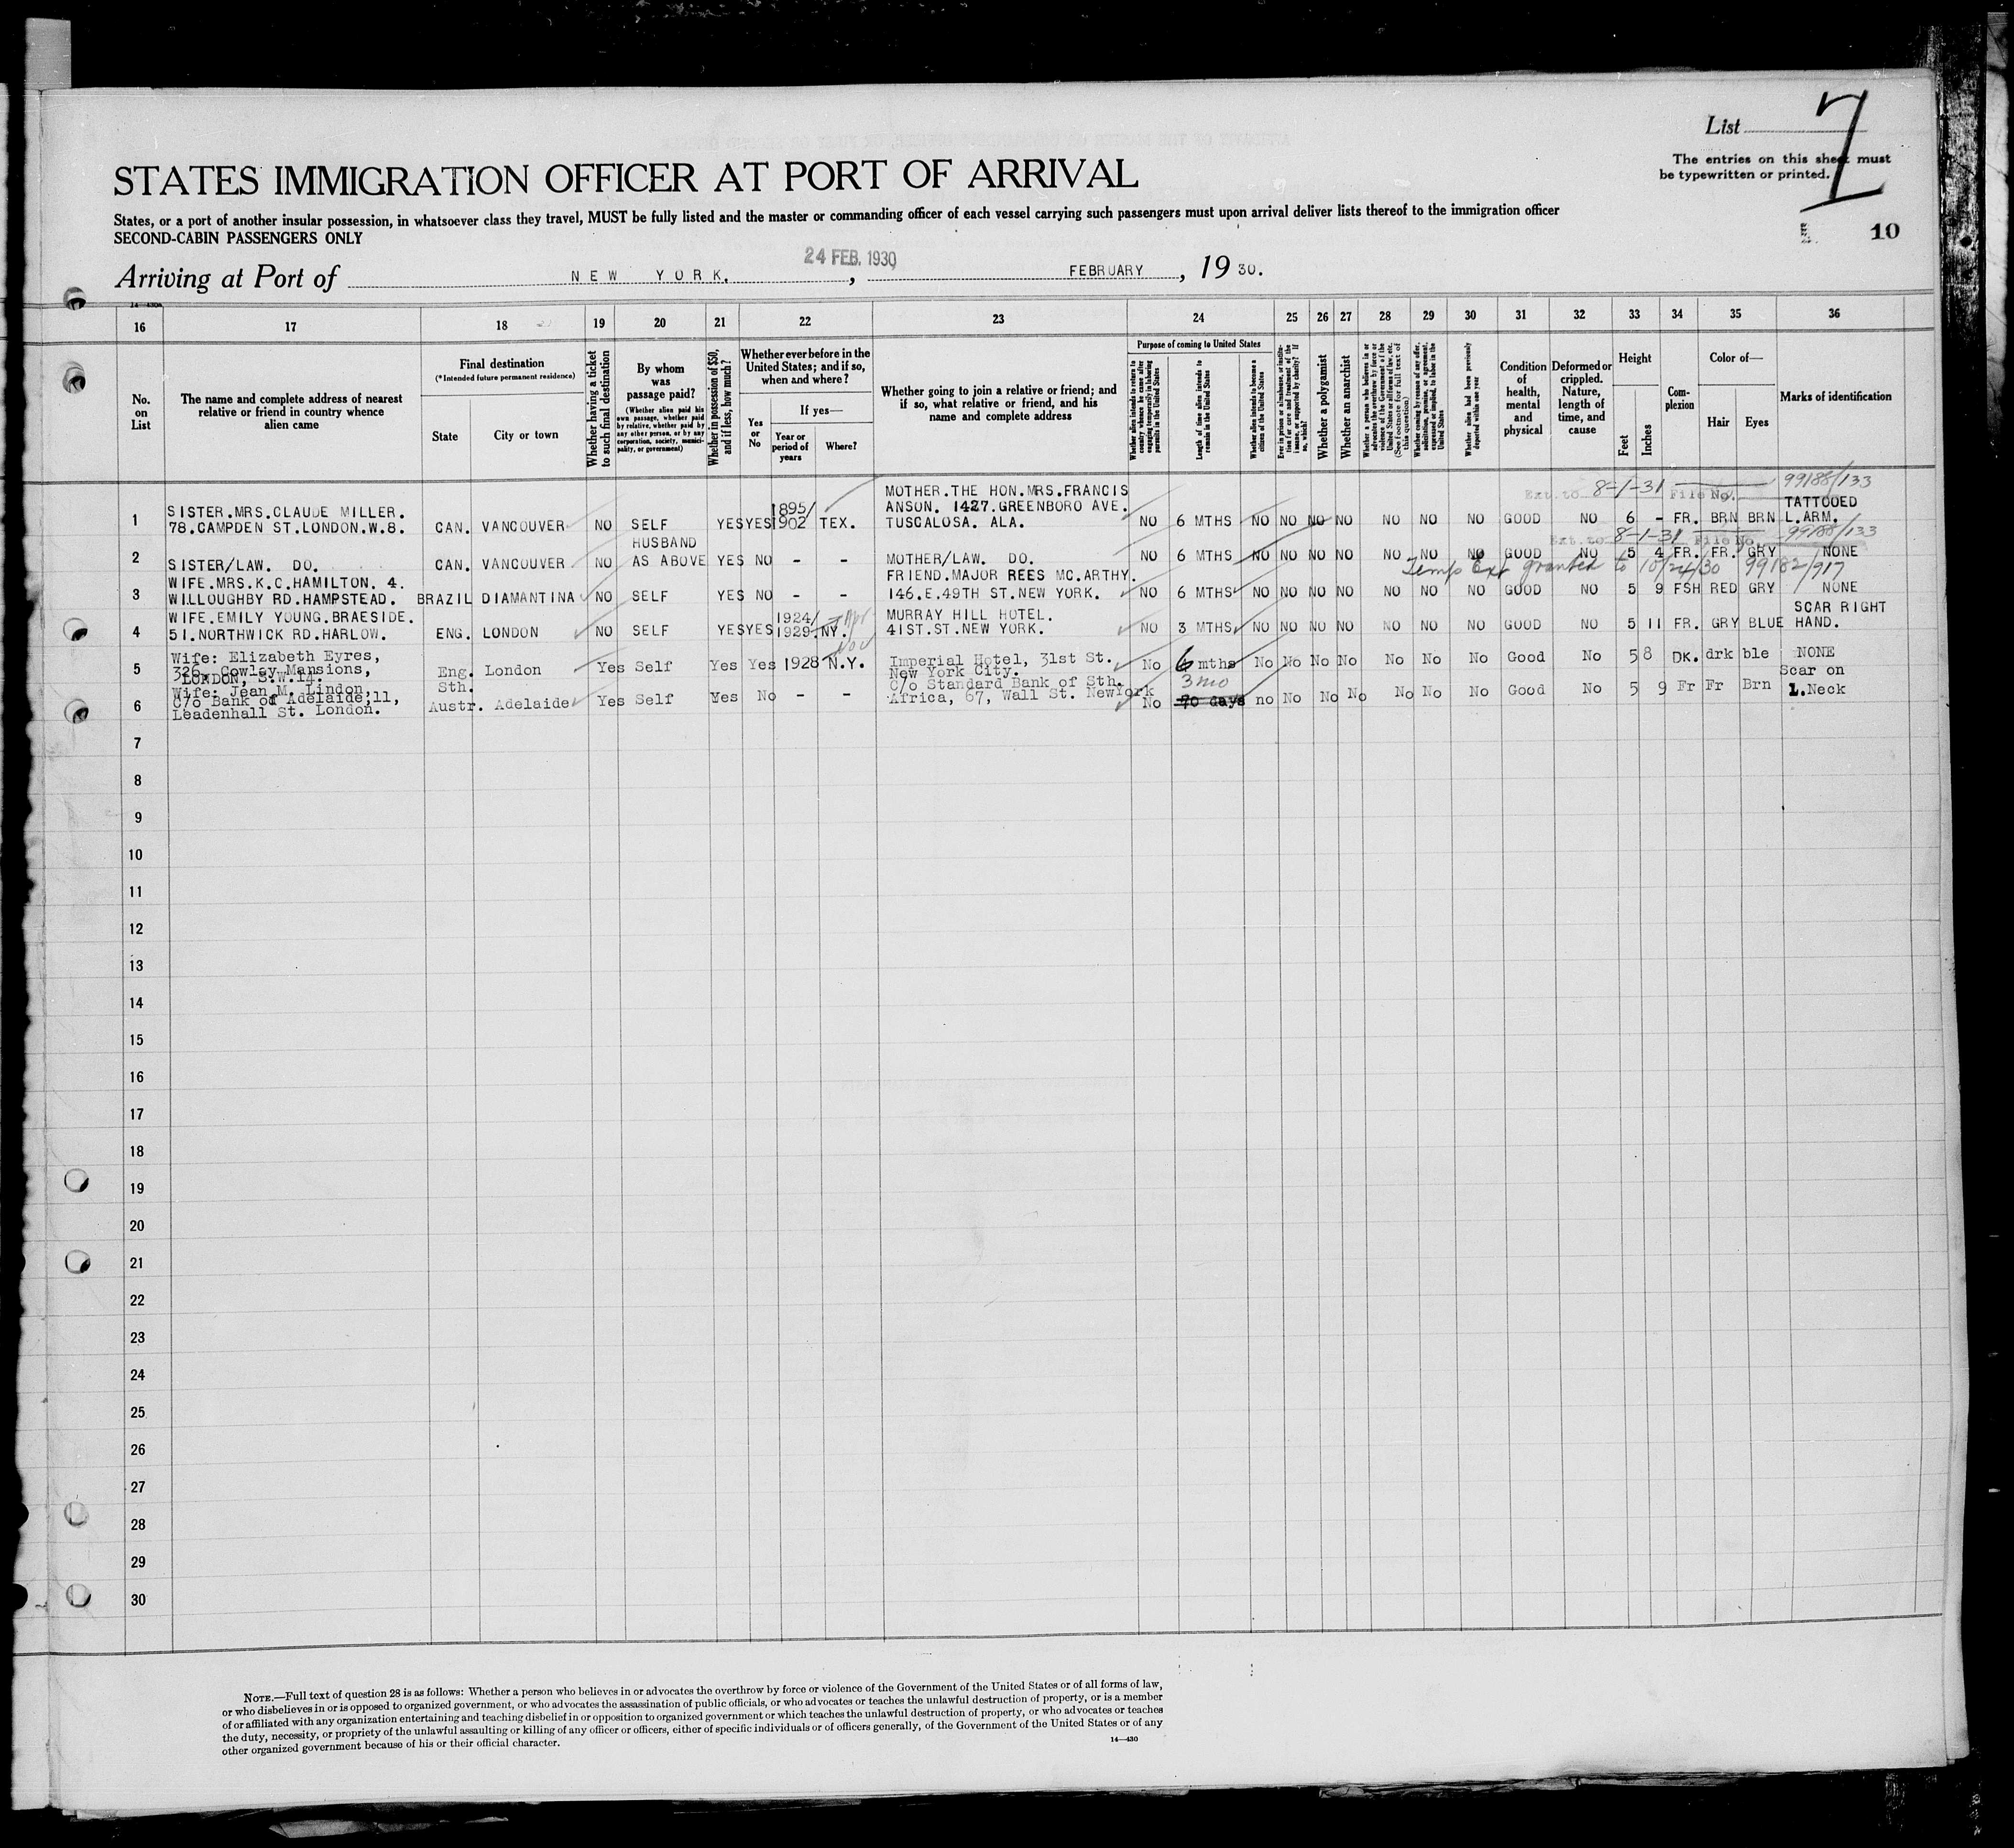 List 7
The entries on this sheet must
be typewritten or printed.
STATES IMMIGRATION OFFICER AT PORT OF ARRIVAL
States, or a port of another insular possession, in whatsoever class they travel, MUST be fully listed and the master or commanding officer of each vessel carrying such passengers must upon arrival deliver lists thereof to the immigration officer
SECOND-CABIN PASSENGERS ONLY
10
24 FEB. 1930
Arriving at Port of NEW YORK. , FEBRUARY , 19 30.
14—430A
16 17 18 19 20 21 22 23 24 25 26 27 28 29 30 31 32 33 34 35 36
No. on List
The name and complete address of nearest relative or friend in country whence alien came
Final destination
(*Intended future permanent residence)
State
City or town
Whether having a ticket to such final destination
By whom was passage paid?
(Whether alien paid his own passage, whether paid by relative, whether paid by any other person, or by any corporation, society, municipality, or government)
Whether in possession of $50, and if less, how much?
Whether ever before in the United States; and if so, when and where?
Yes or No
If yes—
Year or period of years
Where?
Whether going to join a relative or friend; and if so, what relative or friend, and his name and complete address
Purpose of coming to United States
Whether alien intends to return to country whence he came after engaging temporarily in laboring pursuits in the United States
Length of time alien intends to remain in the United States
Whether alien intends to become a citizen of the United States
Ever in prison or almshouse, or institution for care and treatment of the insane, or supported by charity? If so, which?
Whether a polygamist
Whether an anarchist
Whether a person who believes in or advocates the overthrow by force or violence of the Government of the United States or all forms of law, etc. (See footnote for full text of this question)
Whether coming by reason of any offer, solicitation, promise, or agreement, expressed or implied, to labor in the United States
Whether alien had been previously deported within one year
Condition of health, mental and physical
Deformed or crippled. Nature, length of time, and cause
Height
Feet
Inches
Complexion
Color of—
Hair
Eyes
Marks of identification
Ext. to 8-1-31 File No. 99188/133
1 SISTER.MRS.CLAUDE MILLER. 78.CAMPDEN ST.LONDON.W.8. CAN. VANCOUVER NO SELF YES YES 1895/1902 TEX. MOTHER.THE HON.MRS.FRANCIS ANSON. 1427.GREENBORO AVE. TUSCALOSA. ALA. NO 6 MTHS NO NO NO NO NO NO NO GOOD NO 6 - FR. BRN BRN TATTOOED L.ARM.
Ext. to 8-1-31 File No. 99188/133
2 SISTER/LAW. DO. CAN. VANCOUVER NO HUSBAND AS ABOVE YES NO - - MOTHER/LAW. DO. NO 6 MTHS NO NO NO NO NO NO NO GOOD NO 5 4 FR. FR. GRY NONE
Temp Ext granted to 10/24/30 99182/917
3 WIFE.MRS.K.C.HAMILTON. 4. WILLOUGHBY RD.HAMPSTEAD. BRAZIL DIAMANTINA NO SELF YES NO - - FRIEND.MAJOR REES MC.ARTHY. 146.E.49TH ST.NEW YORK. NO 6 MTHS NO NO NO NO NO NO NO GOOD NO 5 9 FSH RED GRY NONE
4 WIFE.EMILY YOUNG.BRAESIDE. 51.NORTHWICK RD.HARLOW. ENG. LONDON NO SELF YES YES 1924/1929. NY. Nov MURRAY HILL HOTEL. 41ST.ST.NEW YORK. NO 3 MTHS NO NO NO NO NO NO NO GOOD NO 5 11 FR. GRY BLUE SCAR RIGHT HAND.
5 Wife: Elizabeth Eyres, 326, Cowley Mansions, LONDON, S.W.14. Eng. London Yes Self Yes Yes 1928 N.Y. Imperial Hotel, 31st St. New York City. No 6 mths No No No No No No No Good No 5 8 DK. drk ble NONE
6 Wife: Jean M. Lindon, C/o Bank of Adelaide,11, Leadenhall St. London. Sth. Austr. Adelaide Yes Self Yes No - - C/o Standard Bank of Sth. Africa, 67, Wall St. NewYork No 3 mo 70 days no No No No No No No Good No 5 9 Fr Fr Brn Scar on L.Neck
7
8
9
10
11
12
13
14
15
16
17
18
19
20
21
22
23
24
25
26
27
28
29
30
NOTE.—Full text of question 28 is as follows: Whether a person who believes in or advocates the overthrow by force or violence of the Government of the United States or of all forms of law,
or who disbelieves in or is opposed to organized government, or who advocates the assassination of public officials, or who advocates or teaches the unlawful destruction of property, or is a member
of or affiliated with any organization entertaining and teaching disbelief in or opposition to organized government or which teaches the unlawful destruction of property, or who advocates or teaches
the duty, necessity, or propriety of the unlawful assaulting or killing of any officer or officers, either of specific individuals or of officers generally, of the Government of the United States or of any
other organized government because of his or their official character.
14—430